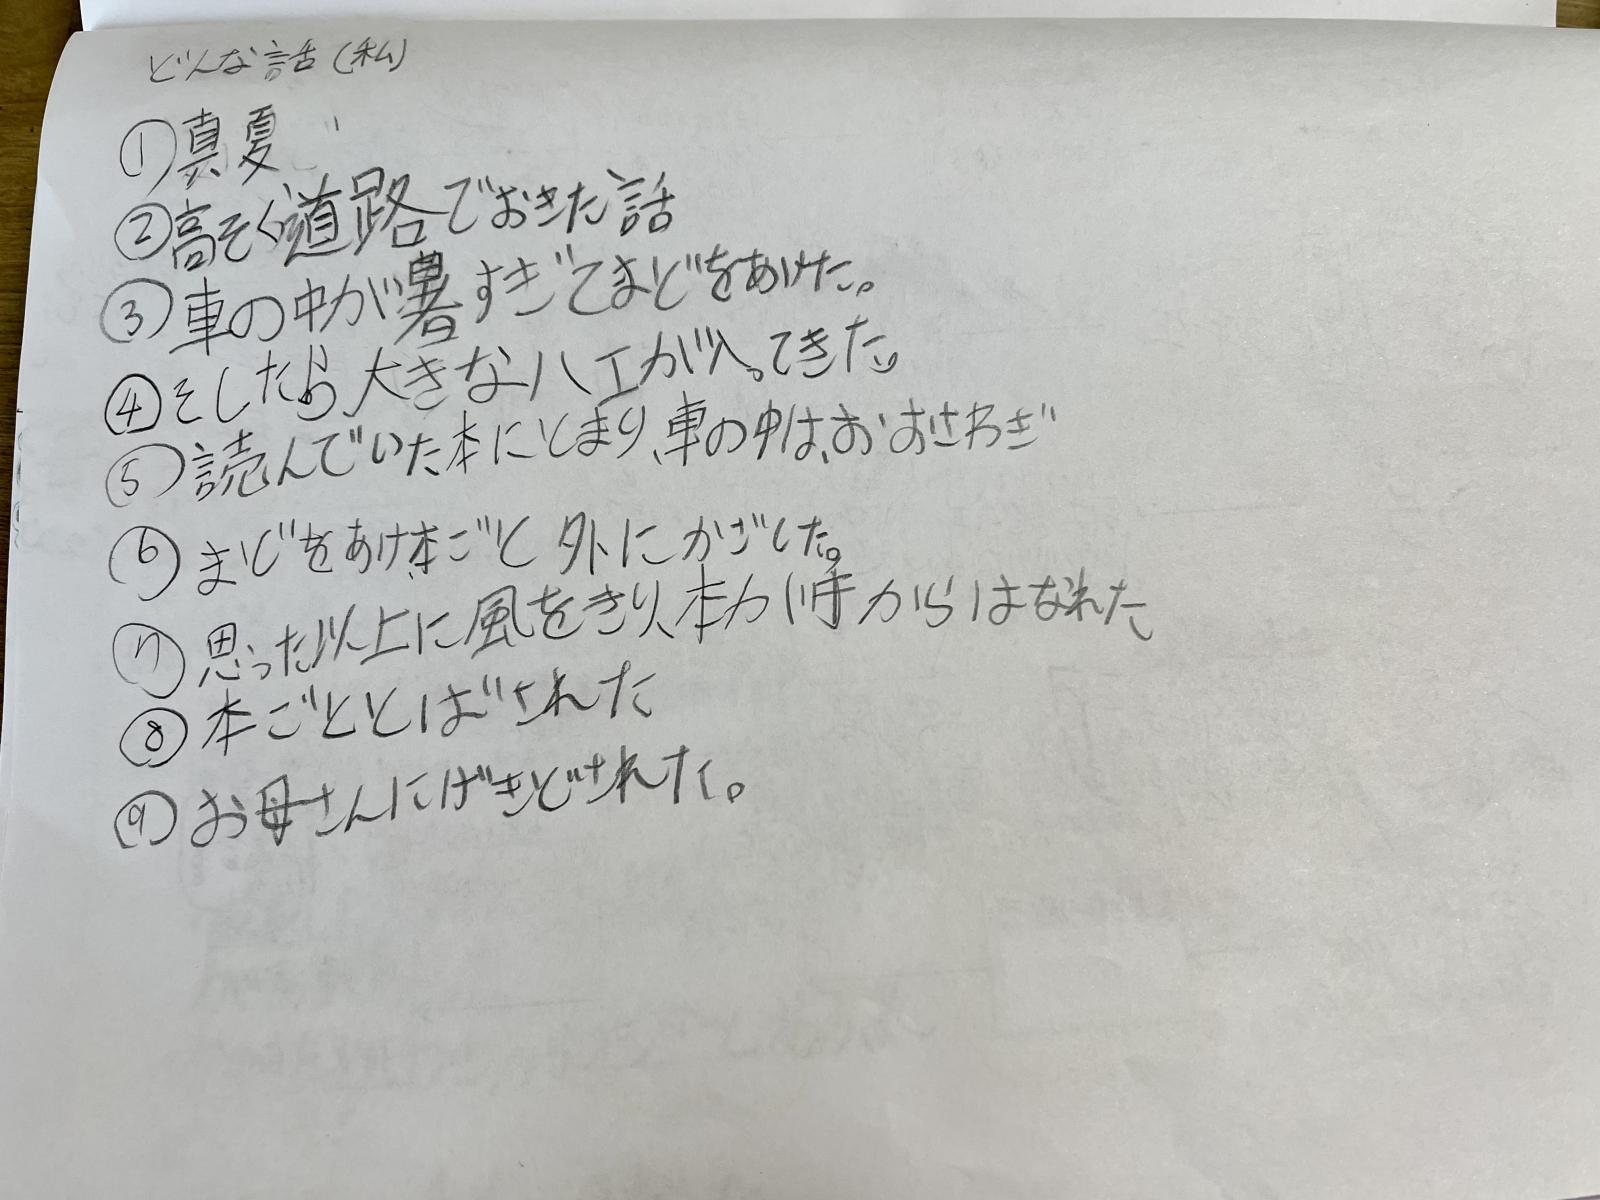 どんな話(私)
①真夏
②高そく道路でおきた話
③車の中が暑すぎてまどをあけた。
④そしたら大きなハエが入ってきた。
⑤読んでいた本にとまり、車の中は、おおさわぎ
⑥まどをあけ、本ごと外にかざした。
⑦思った以上に風をきり、本が手からはなれた
⑧本ごととばされた
⑨お母さんにげきどされた。